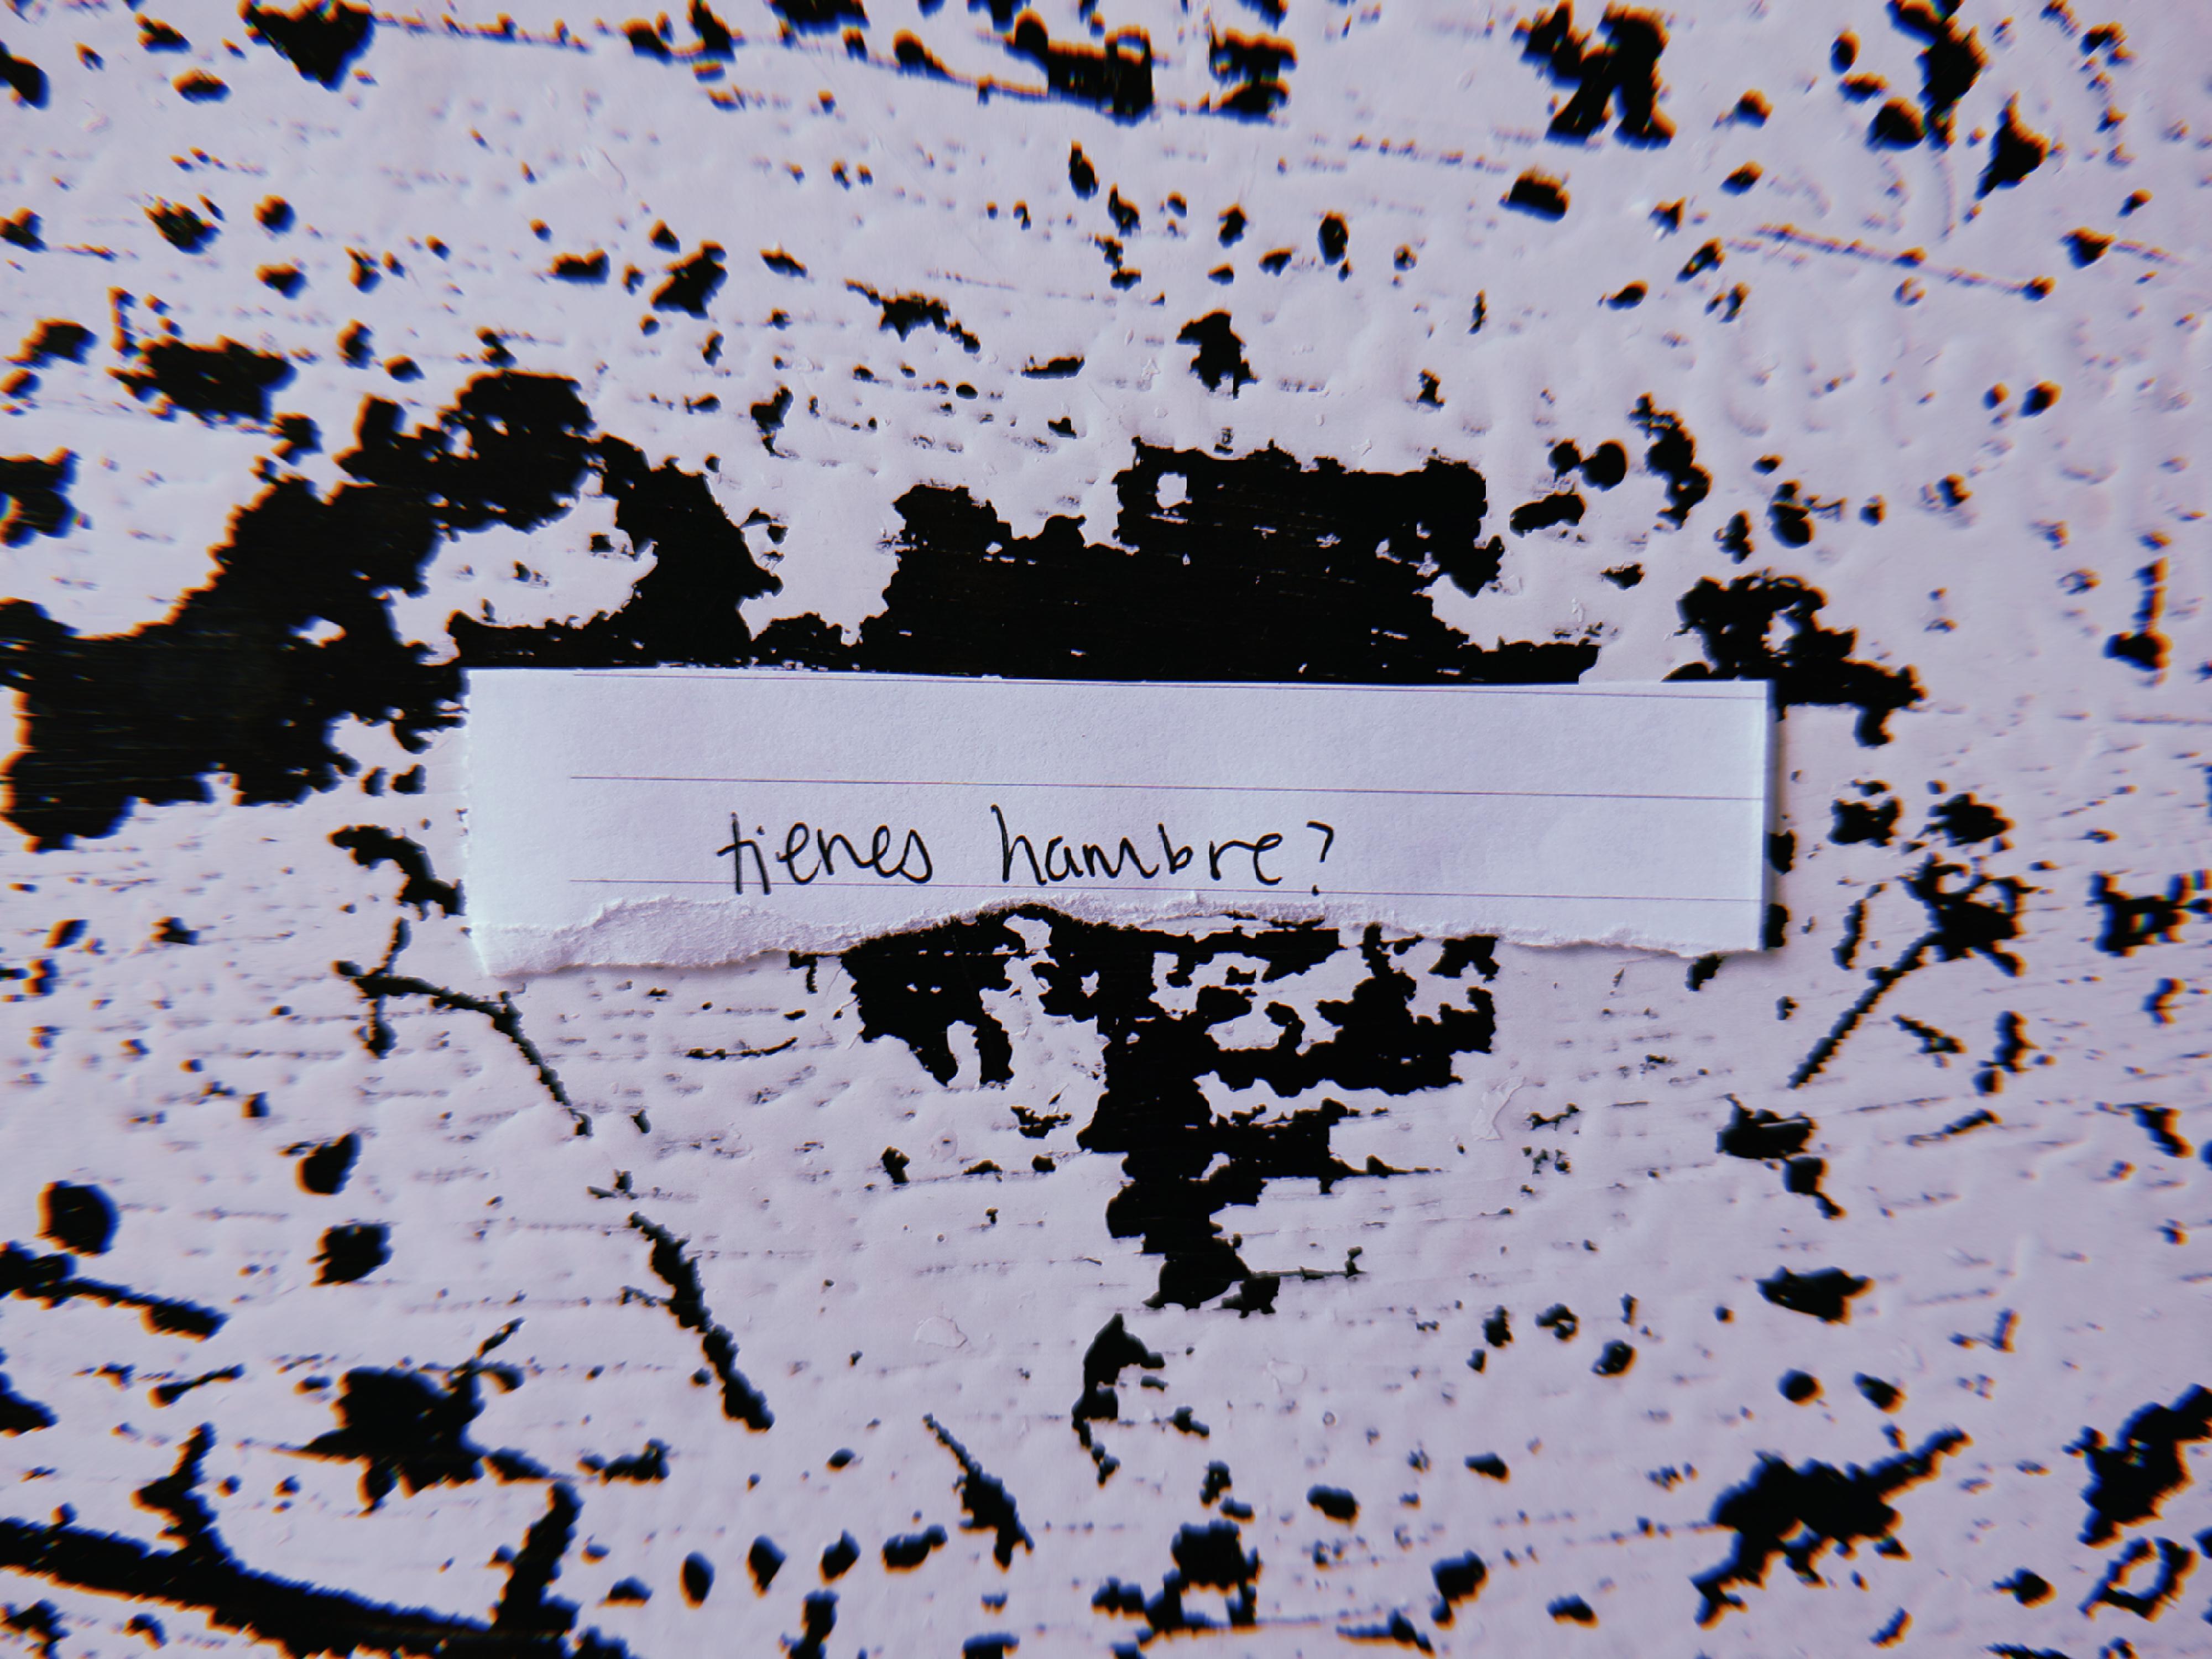 tienes hambre?